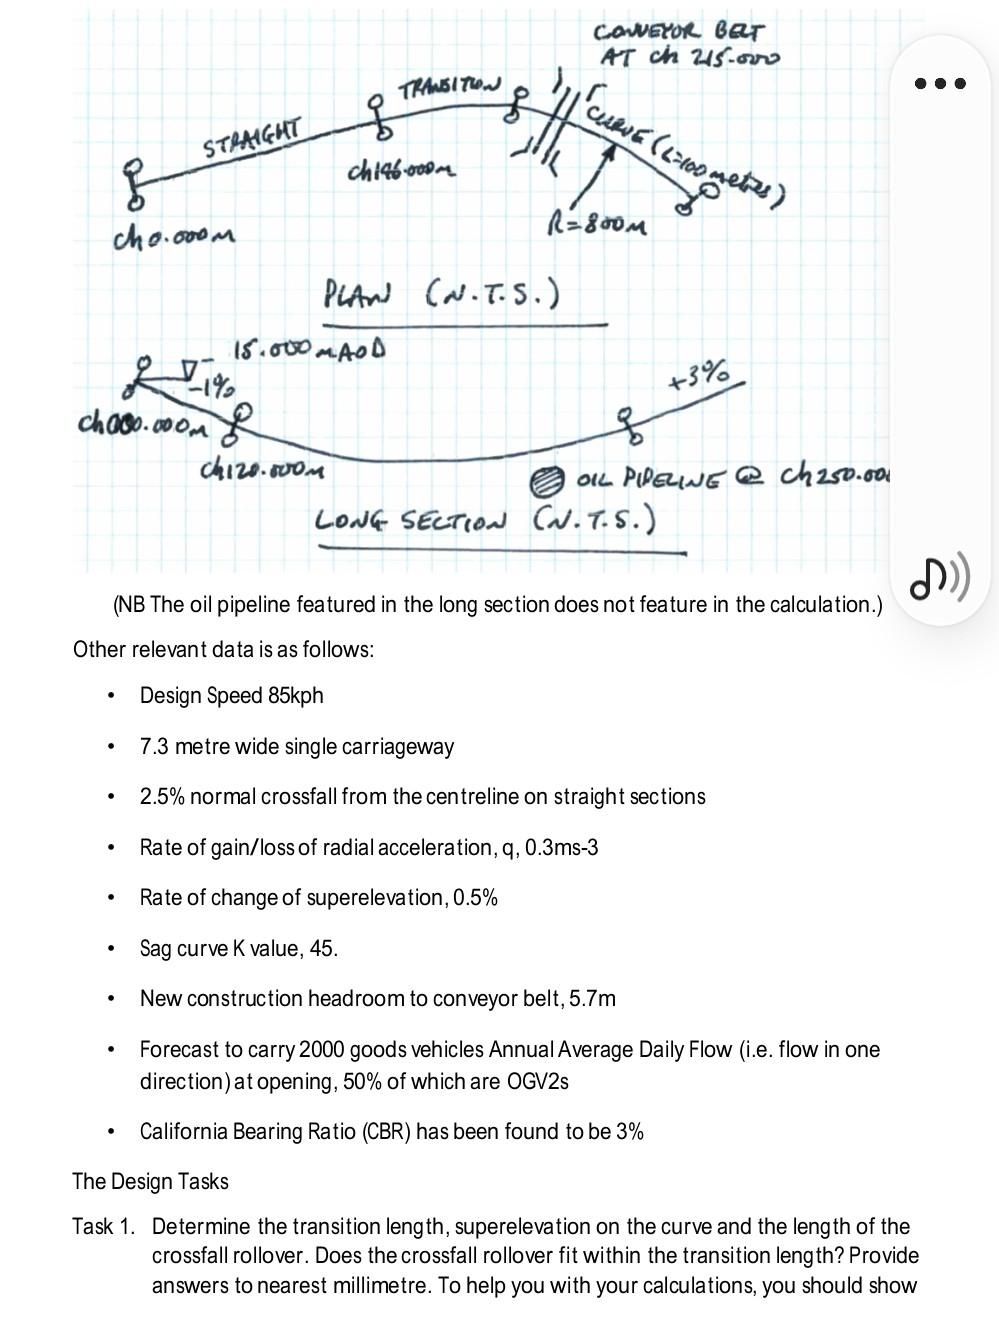 CONVEYOR BELT
AT ch 215.000
TRANSITION
STRAIGHT
CURVE (L=100 metres)
ch146.000m
R=800m
ch 0.000m
PLAN (N.T.S.)
15.000mAOD
-1%
+3%
ch000.000m
ch120.000m
OIL PIPELINE @ ch250.000
LONG SECTION (N.T.S.)
(NB The oil pipeline featured in the long section does not feature in the calculation.)
Other relevant data is as follows:
• Design Speed 85kph
• 7.3 metre wide single carriageway
• 2.5% normal crossfall from the centreline on straight sections
• Rate of gain/loss of radial acceleration, q, 0.3ms-3
• Rate of change of superelevation, 0.5%
• Sag curve K value, 45.
• New construction headroom to conveyor belt, 5.7m
• Forecast to carry 2000 goods vehicles Annual Average Daily Flow (i.e. flow in one
direction) at opening, 50% of which are OGV2s
• California Bearing Ratio (CBR) has been found to be 3%
The Design Tasks
Task 1. Determine the transition length, superelevation on the curve and the length of the
crossfall rollover. Does the crossfall rollover fit within the transition length? Provide
answers to nearest millimetre. To help you with your calculations, you should show